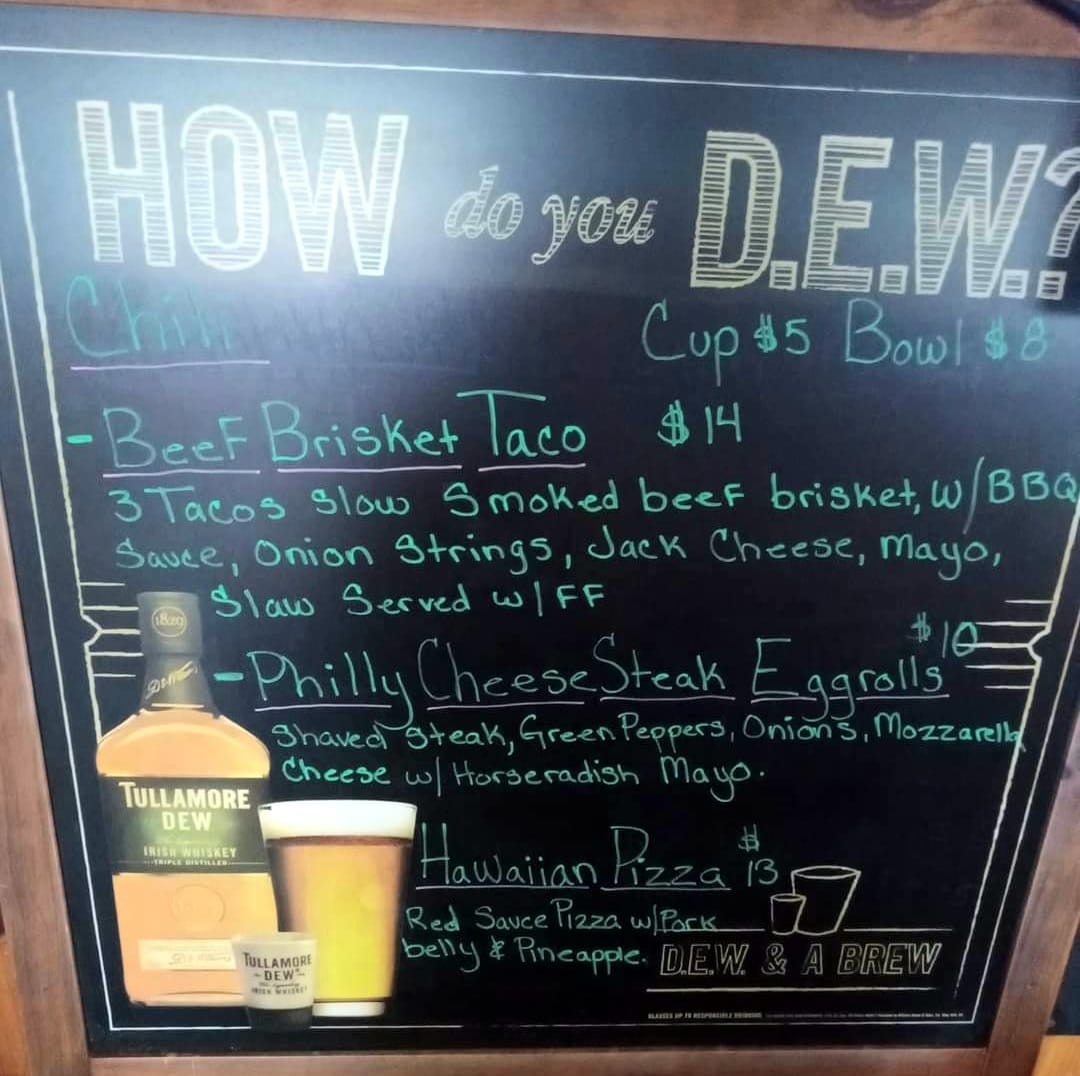 HOW do you D.E.W.?
Chili Cup $5 Bowl $8
- Beef Brisket Taco $14
3 Tacos Slow Smoked beef brisket, w/BBQ
Sauce, Onion Strings, Jack Cheese, Mayo,
Slaw Served w/FF
$10
- Philly Cheese Steak Eggrolls
Shaved Steak, Green Peppers, Onions, Mozzarella
Cheese w/ Horseradish Mayo.
Hawaiian Pizza $13
Red Sauce Pizza w/Pork
belly & Pineapple.
D.E.W. & A BREW
1829
TULLAMORE
DEW
IRISH WHISKEY
TRIPLE DISTILLED
TULLAMORE
DEW
IRISH WHISKEY